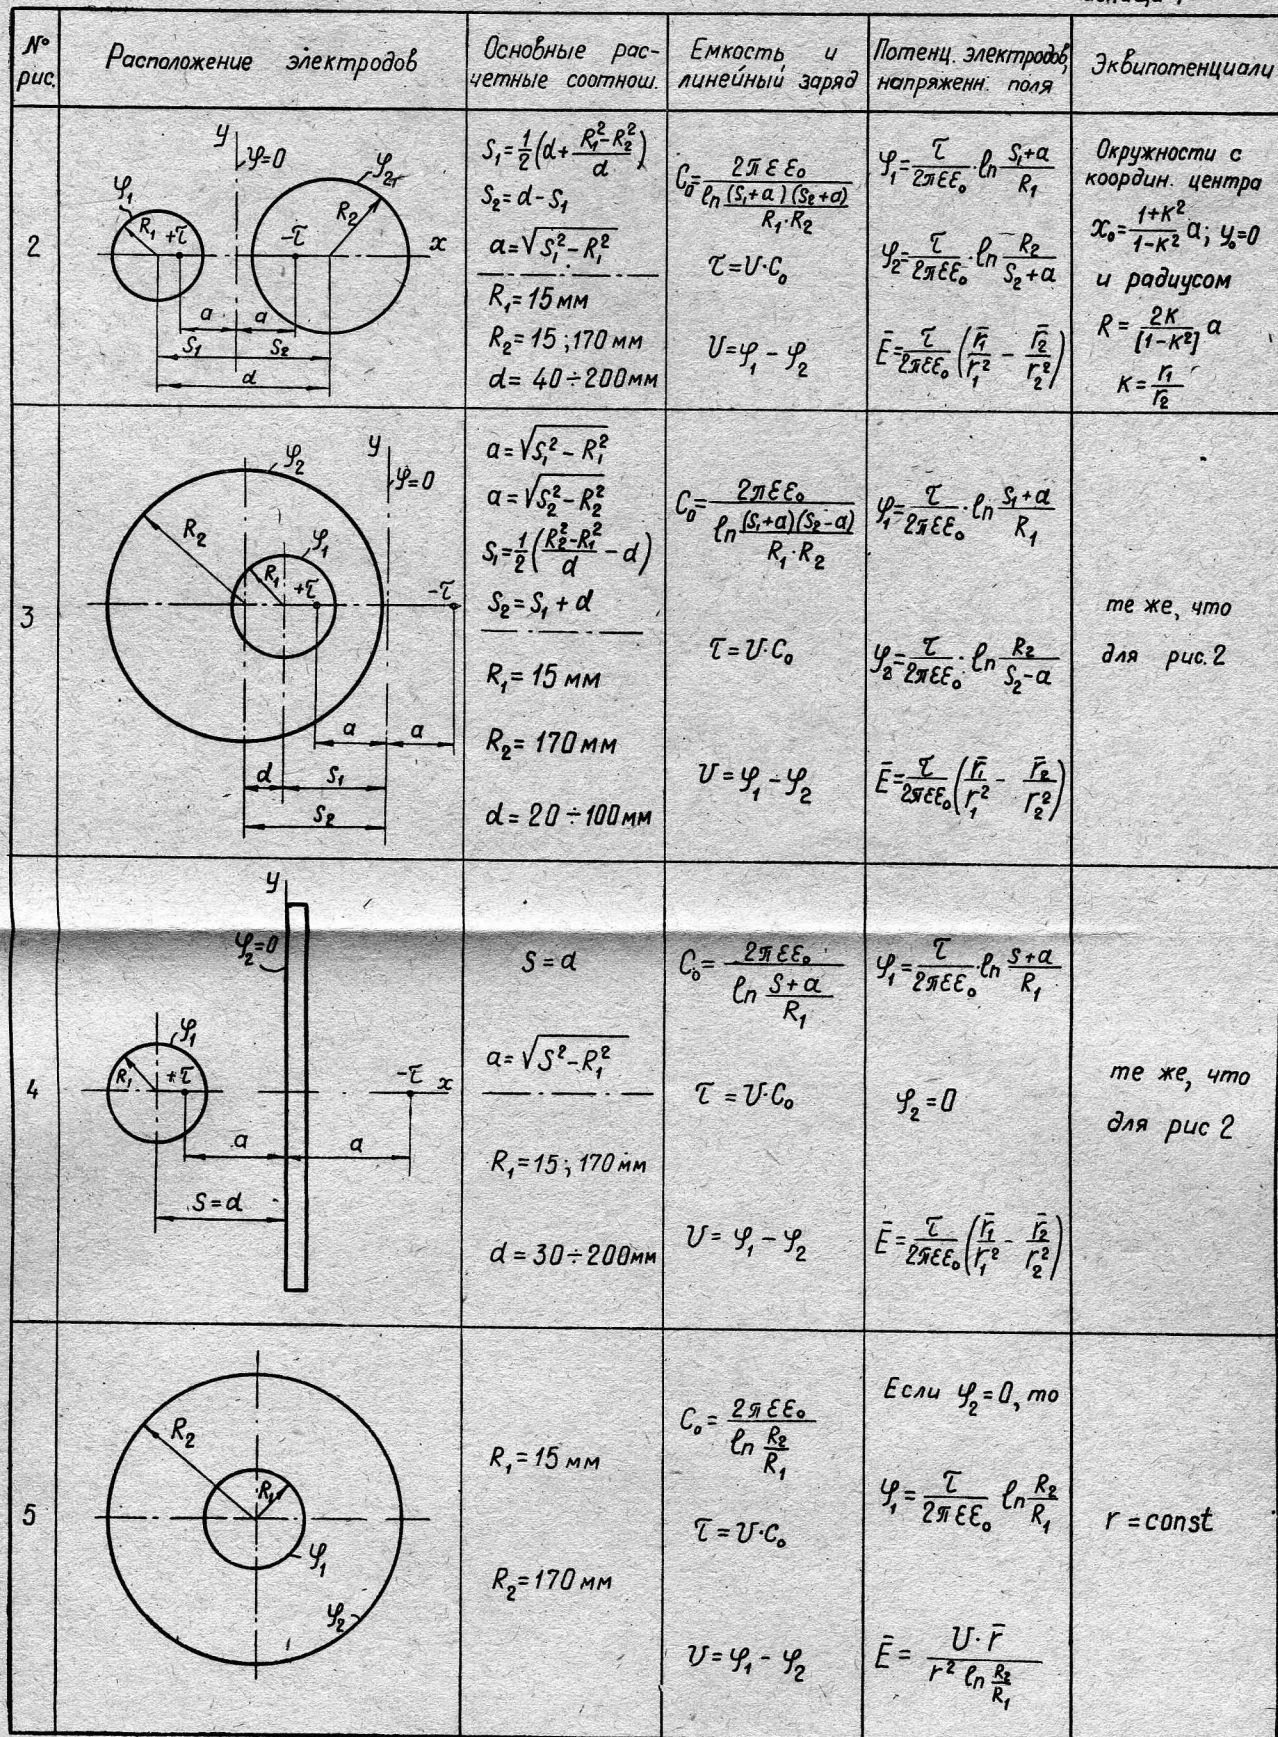 № рис.
Расположение электродов
Основные расчетные соотнош.
Емкость и линейный заряд
Потенц. электродов, напряженн. поля
Эквипотенциали
2
y
φ=0
φ₁
φ₂
R₁
+τ
-τ
R₂
x
a
a
S₁
S₂
d
S₁=½(d+(R₁²-R₂²)/d)
S₂=d-S₁
a=√(S₁²-R₁²)
R₁=15мм
R₂=15;170мм
d=40÷200мм
C₀=2πεε₀/(ln (S₁+a)(S₂+a)/(R₁·R₂))
τ=U·C₀
U=φ₁-φ₂
φ₁=τ/(2πεε₀)·ln (S₁+a)/R₁
φ₂=τ/(2πεε₀)·ln R₂/(S₂+a)
Ē=τ/(2πεε₀)(r̄₁/r₁² - r̄₂/r₂²)
Окружности с
координ. центра
x₀=(1+K²)/(1-K²) a; y₀=0
и радиусом
R=2K/[1-K²] a
K=r₁/r₂
3
φ₂
y
φ=0
R₂
φ₁
R₁
+τ
-τ
a
a
d
S₁
S₂
a=√(S₁²-R₁²)
a=√(S₂²-R₂²)
S₁=½((R₂²-R₁²)/d-d)
S₂=S₁+d
R₁=15мм
R₂=170мм
d=20÷100мм
C₀=2πεε₀/(ln (S₁+a)(S₂-a)/(R₁·R₂))
τ=U·C₀
U=φ₁-φ₂
φ₁=τ/(2πεε₀)·ln (S₁+a)/R₁
φ₂=τ/(2πεε₀)·ln R₂/(S₂-a)
Ē=τ/(2πεε₀)(r̄₁/r₁² - r̄₂/r₂²)
те же, что
для рис.2
4
y
φ₂=0
φ₁
R₁
+τ
-τ
x
a
a
S=d
S=d
a=√(S²-R₁²)
R₁=15;170мм
d=30÷200мм
C₀=2πεε₀/(ln (S+a)/R₁)
τ=U·C₀
U=φ₁-φ₂
φ₁=τ/(2πεε₀)·ln (S+a)/R₁
φ₂=0
Ē=τ/(2πεε₀)(r̄₁/r₁² - r̄₂/r₂²)
те же, что
для рис 2
5
R₂
R₁
φ₁
φ₂
R₁=15мм
R₂=170мм
C₀=2πεε₀/(ln R₂/R₁)
τ=U·C₀
U=φ₁-φ₂
Если φ₂=0, то
φ₁=τ/(2πεε₀) ln R₂/R₁
Ē=U·r̄/(r² ln R₂/R₁)
r=const